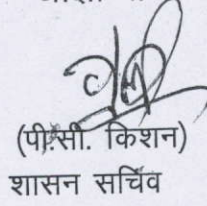 (पी.सी. किशन)
शासन सचिव